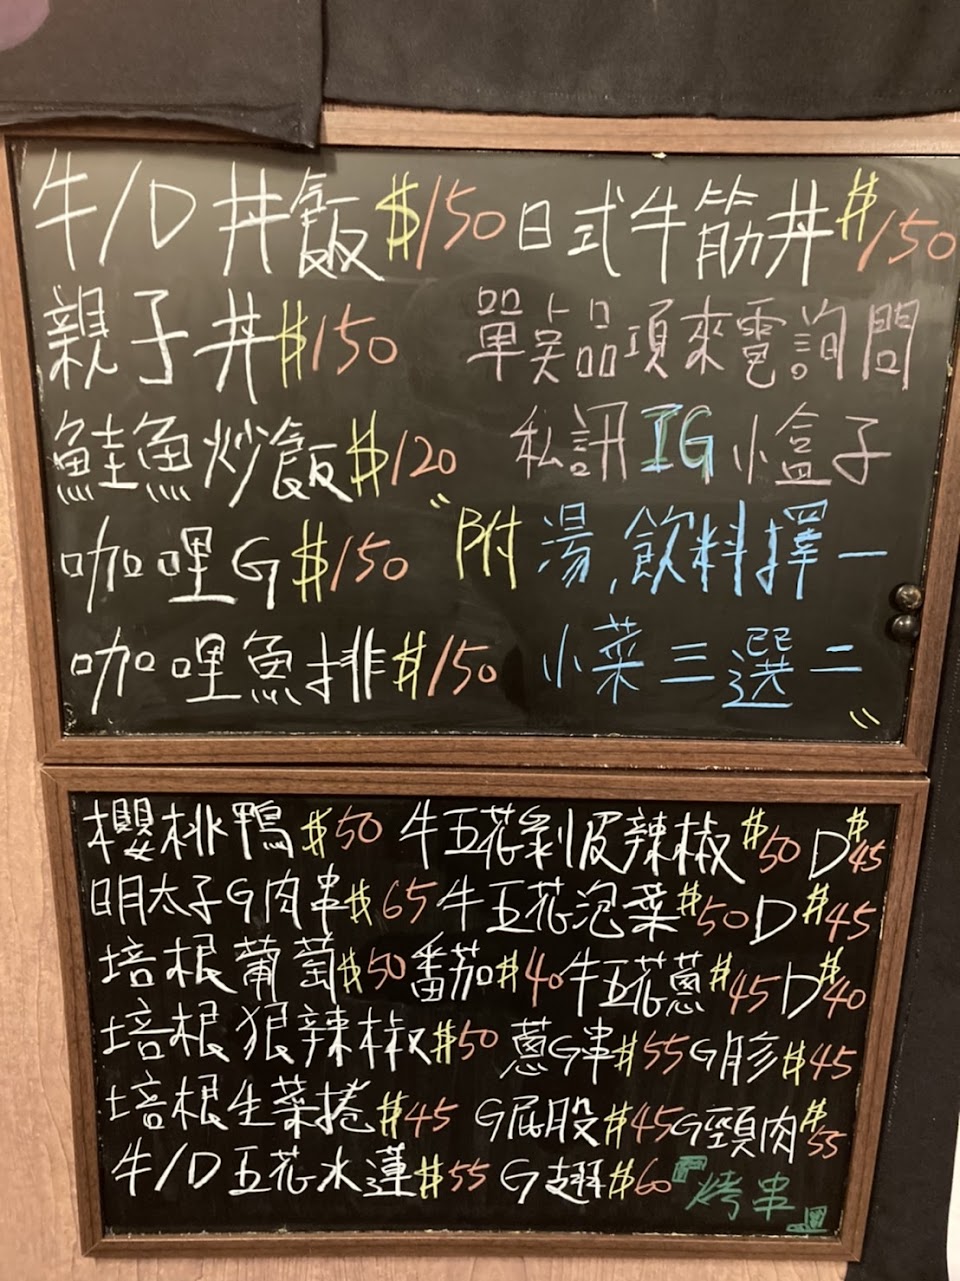 牛/D 丼飯$150 日式牛筋丼$150
親子丼$150 單點品項來電詢問
鮭魚炒飯$120 私訊IG小盒子
咖哩G$150 "附湯,飲料擇一
咖哩魚排$150 小菜三選二"
櫻桃鴨$50 牛五花剝皮辣椒$50 D$45
明太子G肉串$65 牛五花泡菜$50 D$45
培根葡萄$50 番茄$40 牛五花蔥$45 D$40
培根狠辣椒$50 蔥G串$55 G胗$45
培根生菜捲$45 G屁股$45 G頸肉$55
牛/D五花水蓮$55 G翅$60 『烤串』